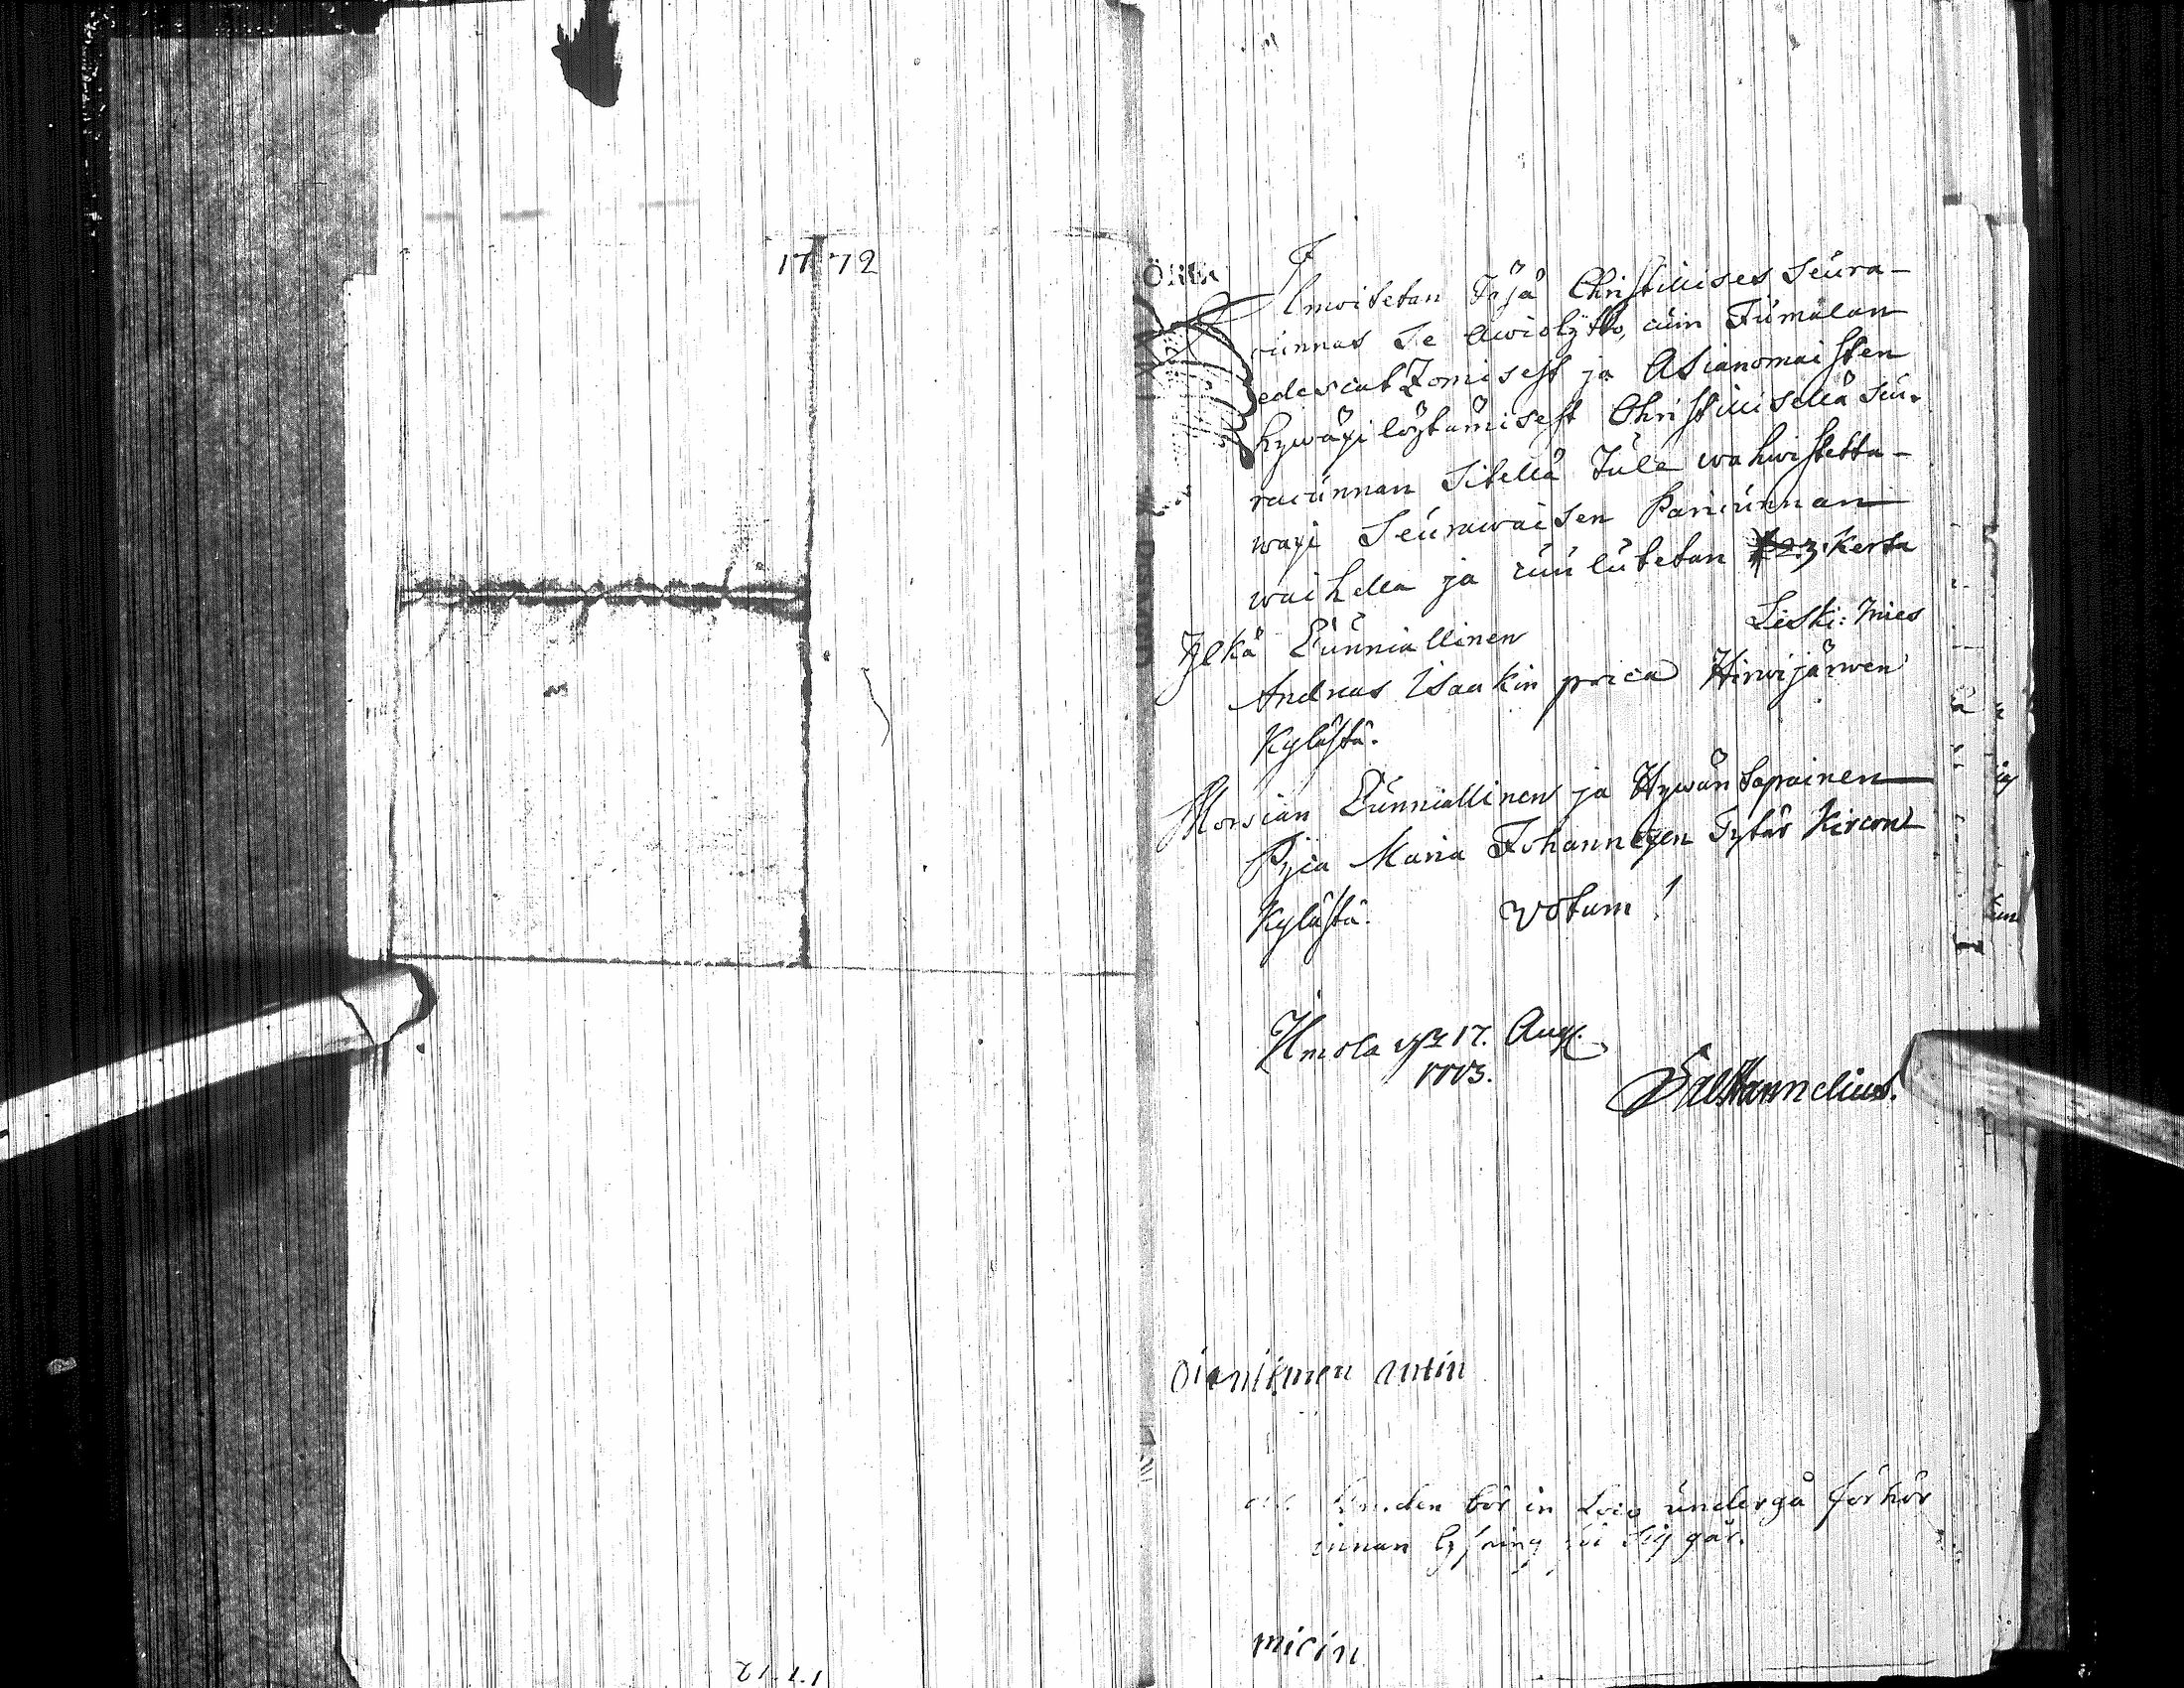 1772
Ilmoitetan Täsä Christillises Seura-
cunnas Se Awiokätkö, cuin Jumalan
edescatzomisest ja Asianomaisten
hywäxi löytämisest Christillisellä Seu-
racunnan Sitellä Tule wahwistetta-
waxi Seurawaisen Pariscunnan
waihella ja cuulutetan 3. Kerta
Ylkä Cunniallinen Leski: Mies
Andreas Isaakin poica Hirwijärwen
Kylästä.
Morsian Cunniallinen ja Hywän Sapainen
Pijca Maria Johannexen Tytär Kircon
Kylästä. Votum!
Ilmola 17. Aug.
1773.
antin
bör in undergå förhör
innan lysning sig går.
micin